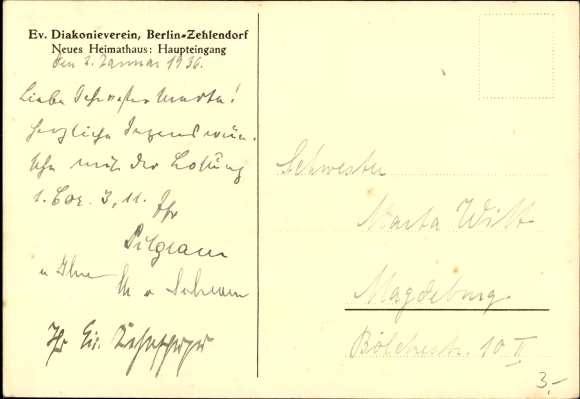 Ev. Diakonieverein, Berlin-Zehlendorf
Neues Heimathaus: Haupteingang
den 2. Januar 1936.
Liebe Schwester Marta!
Herzliche Segenswün-
sche mit der Losung
1. Cor. 3, 11. Ihr
Pilgram
u Ihre
Ihr
Schwester
Marta Witt
Magdeburg
Bölckestr. 10 II
3,-